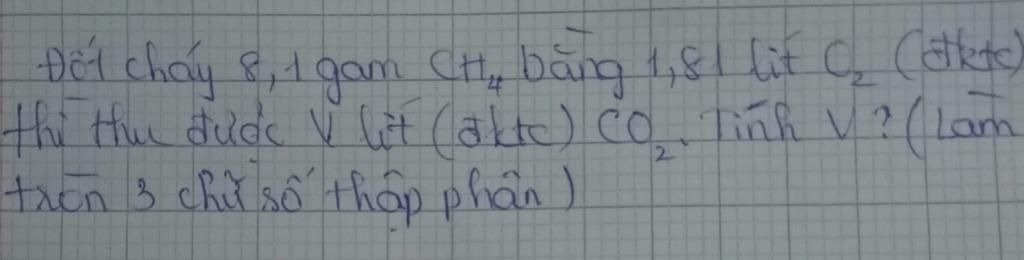 Đốt cháy 8,1 gam CH₄ bằng 1,81 lít C₂ (đktc)
thì thu được V lít (đktc) CO₂. Tính V? (Làm
tròn 3 chữ số thập phân)